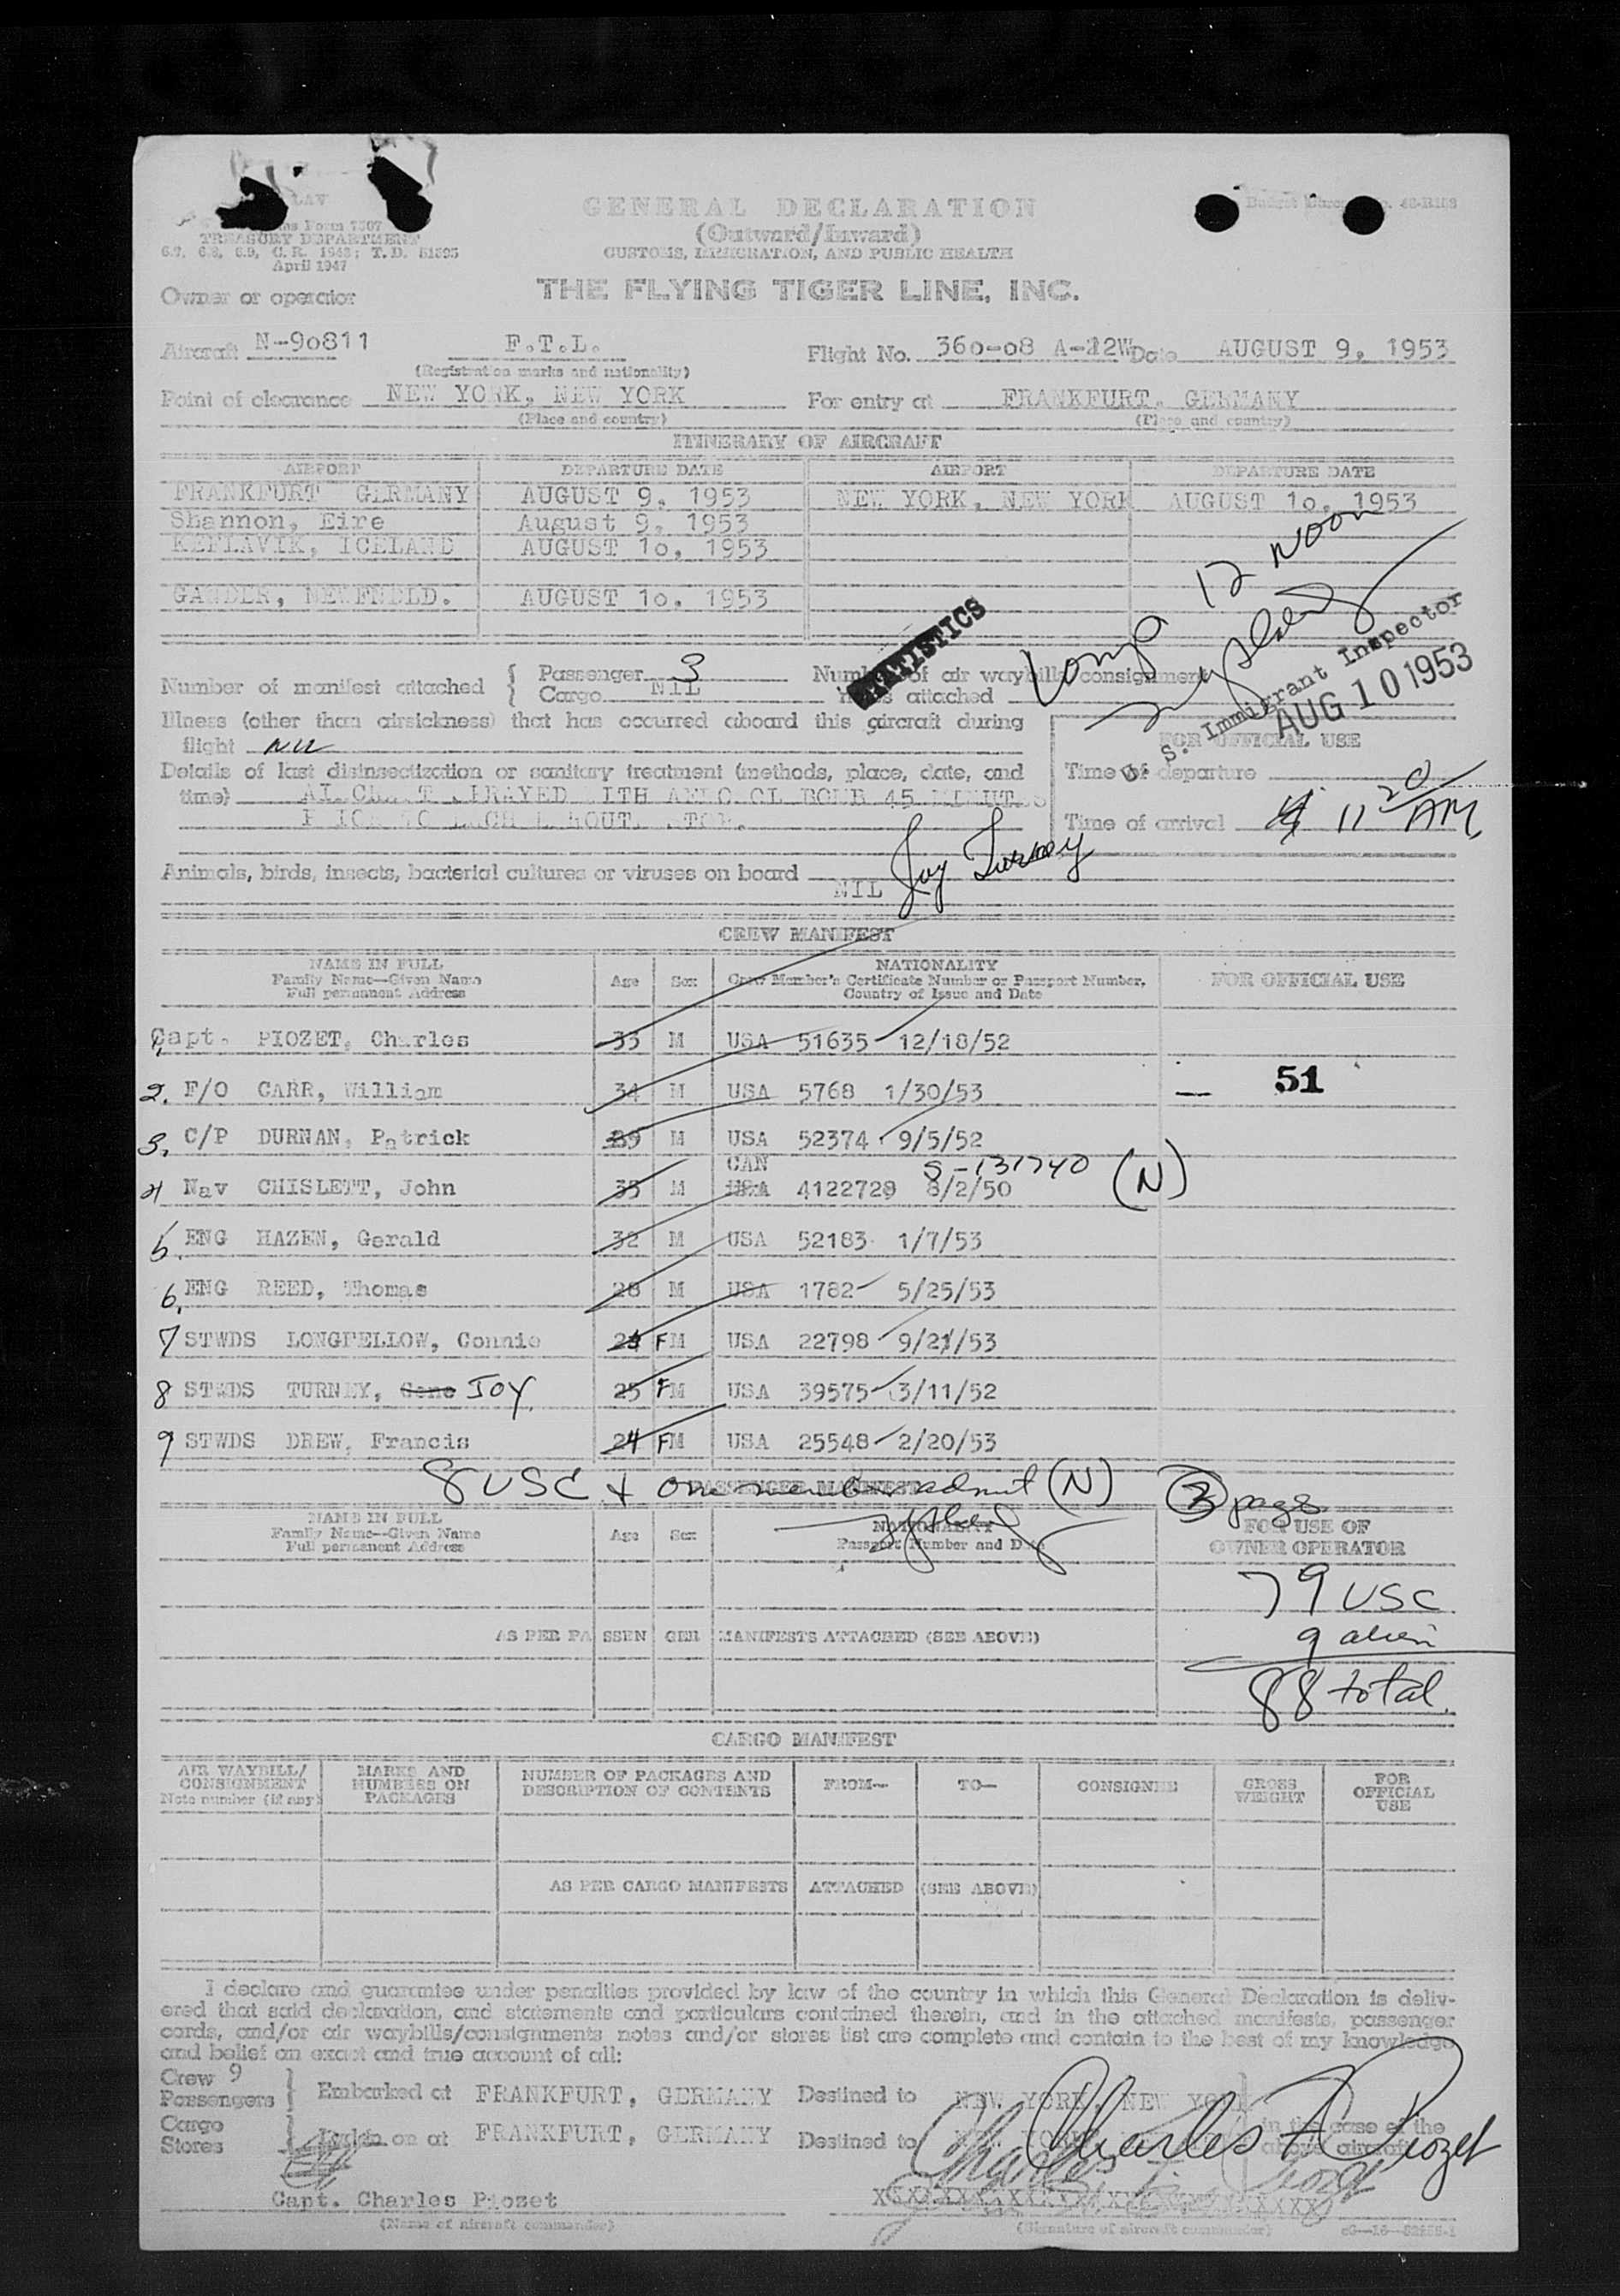 GENERAL DECLARATION
(Outward/Inward)
CUSTOMS, IMMIGRATION, AND PUBLIC HEALTH
Form 7507
TREASURY DEPARTMENT
April 1947
THE FLYING TIGER LINE, INC.
Owner or operator
Aircraft N-90811 F.T.L. Flight No. 360-08 A-12W Date AUGUST 9, 1953
(Registration marks and nationality)
Point of clearance NEW YORK, NEW YORK For entry at FRANKFURT, GERMANY
(Place and country) (Place and country)
ITINERARY OF AIRCRAFT
AIRPORT DEPARTURE DATE AIRPORT DEPARTURE DATE
FRANKFURT GERMANY AUGUST 9, 1953 NEW YORK, NEW YORK AUGUST 10, 1953
Shannon, Eire August 9, 1953
KEFLAVIK, ICELAND AUGUST 10, 1953
12 Noon
GANDER, NEWFNDLD. AUGUST 10, 1953
STATISTICS
U.S. Immigrant Inspector
AUG 10 1953
Number of manifest attached { Passenger 3 Number of air waybills/consignment
Cargo NIL attached
Illness (other than airsickness) that has occurred aboard this aircraft during
flight Nil
FOR OFFICIAL USE
Details of last disinsectization or sanitary treatment (methods, place, date, and
time) AIRCRAFT SPRAYED WITH AEROSOL BOMB 45 MINUTES
Time of departure
Time of arrival 11 20 AM
Animals, birds, insects, bacterial cultures or viruses on board NIL Joy Turney
CREW MANIFEST
NAME IN FULL
Family Name—Given Name
Full permanent Address
Age Sex
NATIONALITY
Crew Member's Certificate Number or Passport Number,
Country of Issue and Date
FOR OFFICIAL USE
1. Capt. PIOZET, Charles 33 M USA 51635 12/18/52
2. F/O CARR, William 34 M USA 5768 1/30/53 — 51
3. C/P DURNAN, Patrick 29 M USA 52374 9/5/52
CAN S-131740 (N)
4 Nav CHISLETT, John 33 M USA 4122729 8/2/50
5. ENG HAZEN, Gerald 32 M USA 52183 1/7/53
6. ENG REED, Thomas 28 M USA 1782 5/25/53
7 STWDS LONGFELLOW, Connie 24 FM USA 22798 9/21/53
8 STWDS TURNEY, Gene JOY 25 FM USA 39575 3/11/52
9 STWDS DREW, Francis 24 FM USA 25548 2/20/53
8 USC + one admit (N) 3 pags
PASSENGER MANIFEST
NAME IN FULL
Family Name—Given Name
Full permanent Address
Age Sex
NATIONALITY
Passport Number and Date
FOR USE OF
OWNER OPERATOR
79 USC
AS PER PASSENGER MANIFESTS ATTACHED (SEE ABOVE)
9 alien
88 total
CARGO MANIFEST
AIR WAYBILL/
CONSIGNMENT
Note number (if any)
MARKS AND
NUMBERS ON
PACKAGES
NUMBER OF PACKAGES AND
DESCRIPTION OF CONTENTS
FROM— TO— CONSIGNEE
GROSS
WEIGHT
FOR
OFFICIAL
USE
AS PER CARGO MANIFESTS ATTACHED (SEE ABOVE)
I declare and guarantee under penalties provided by law of the country in which this General Declaration is deliv-
ered that said declaration, and statements and particulars contained therein, and in the attached manifests, passenger
cords, and/or air waybills/consignments notes and/or stores list are complete and contain to the best of my knowledge
and belief an exact and true account of all:
Crew 9
Passengers } Embarked at FRANKFURT, GERMANY Destined to NEW YORK, NEW YORK
Cargo
Stores } Laden on at FRANKFURT, GERMANY Destined to
in the case of the
above aircraft
Charles A Piozet
Capt. Charles Piozet
(Name of aircraft commander) (Signature of aircraft commander)